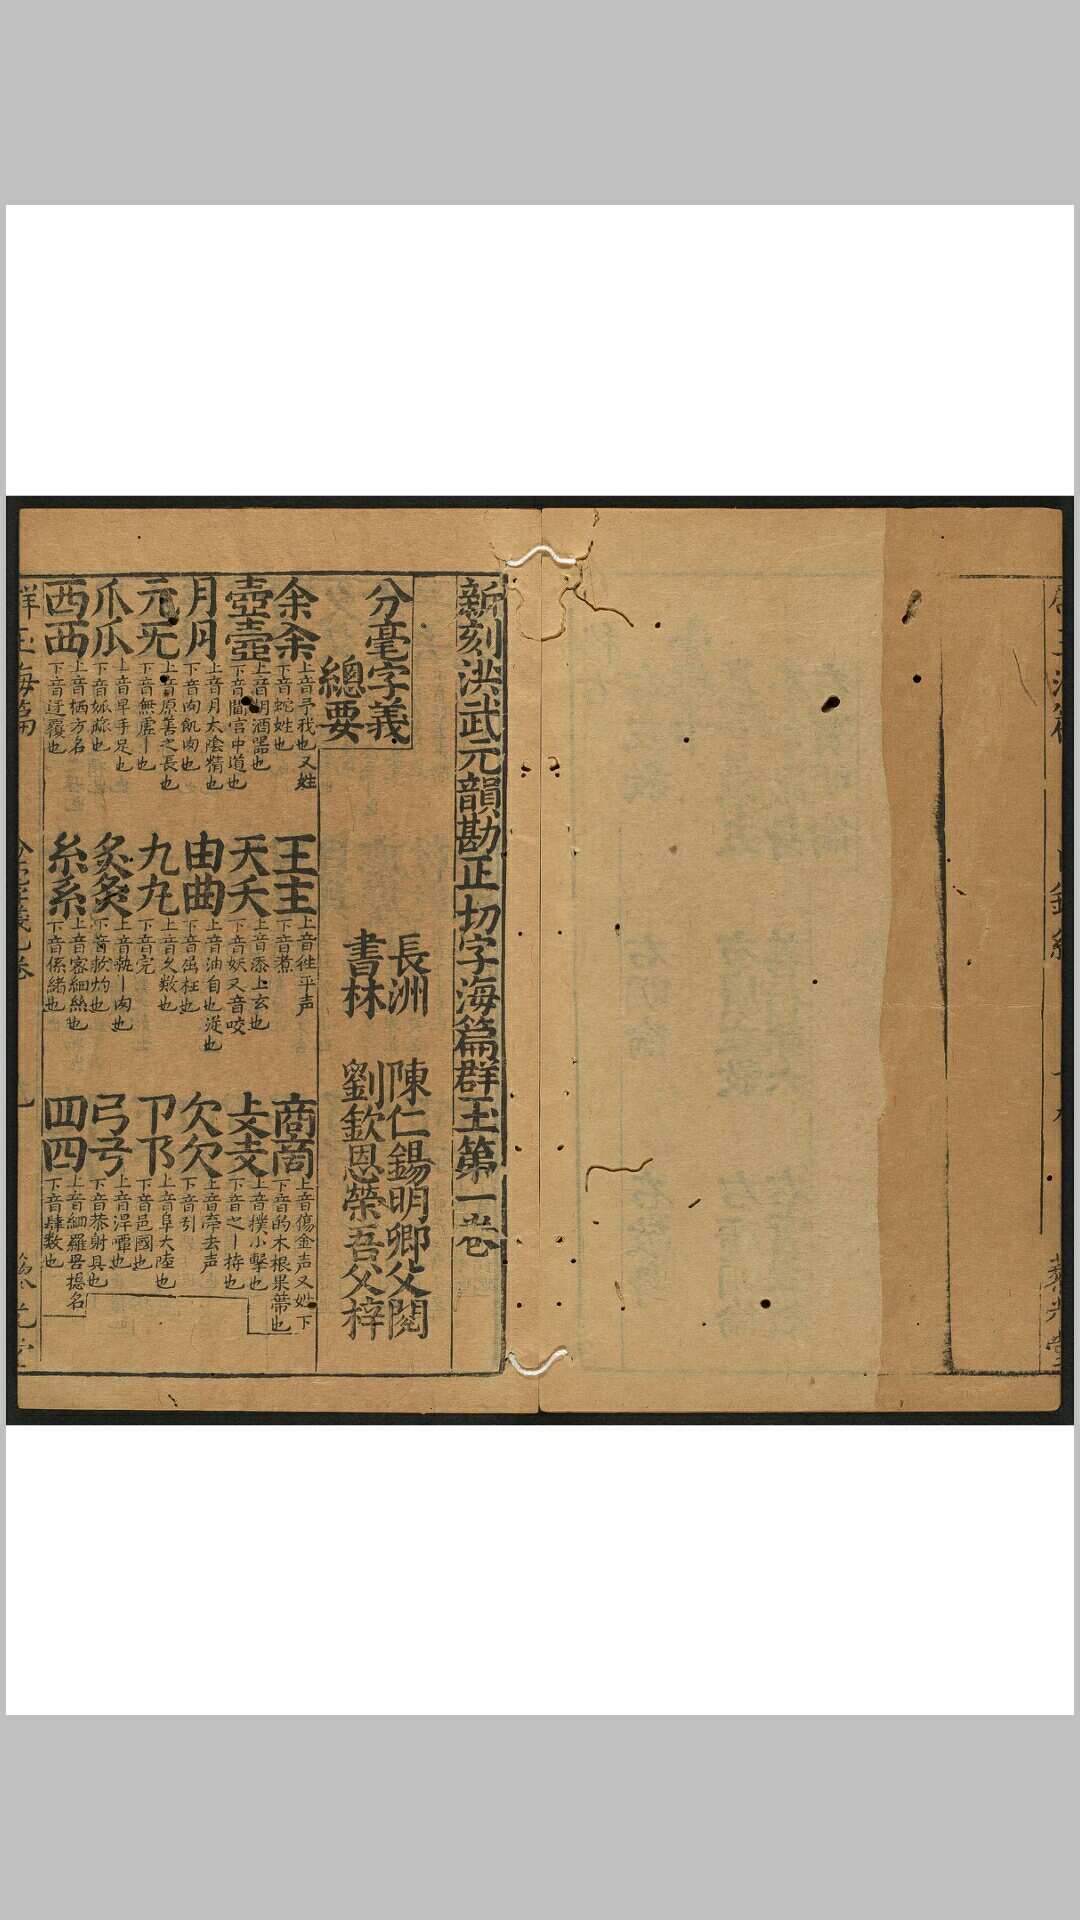 新刻洪武元韻勘正切字海篇群玉第一卷
分毫字義
總要
長洲 陳仁錫明卿父閱
書林 劉欽恩榮吾父梓
余佘
上音予我也又姓
下音蛇姓也
王主
上音徃平声
下音煮
商啇
上音傷金声又姓下
下音的木根果蒂也
壺壼
上音胡酒器也
下音閫宫中道也
天夭
上音添上玄也
下音妖又音咬
攴支
上音樸小擊也
下音之丨持也
月⺼
上音月太陰精也
下音肉飢肉也
由曲
上音油自也從也
下音屈枉也
欠
上音牽去声
下音引
元旡
上音原善之長也
下音無虛丨也
九
上音久数也
下音完
卩阝
上音阜大陸也
下音邑國也
爪瓜
上音早手足也
下
炙灸
上音執丨肉也
下音救灼也
弓
上音
下音恭射具也
西覀
上音栖方名
下音迓覆也
糸系
上音密細絲也
下音係緒也
罒四
上音細羅罟揔名
下音肆数也
群玉海篇
卷